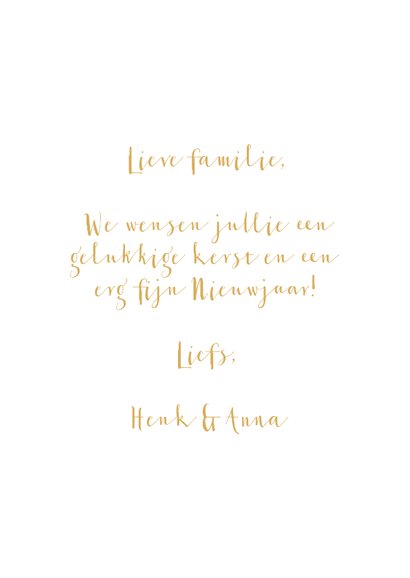 Lieve familie,
We wensen jullie een
gelukkige kerst en een
erg fijn Nieuwjaar!
Liefs,
Henk & Anna